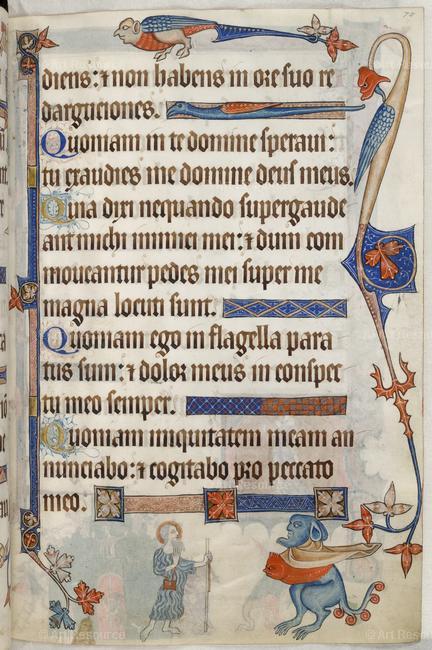 70
diens: ⁊ non habens in ore suo re
darguciones.
Quoniam in te domine speraui:
tu exaudies me domine deus meus.
Quia dixi nequando supergaude
ant michi inimici mei: ⁊ dum com
moueantur pedes mei super me
magna locuti sunt.
Quoniam ego in flagella para
tus sum: ⁊ dolor meus in conspec
tu meo semper.
Quoniam iniquitatem meam an
nunciabo: ⁊ cogitabo pro peccato
meo.
© Art Resource
© Art Resource